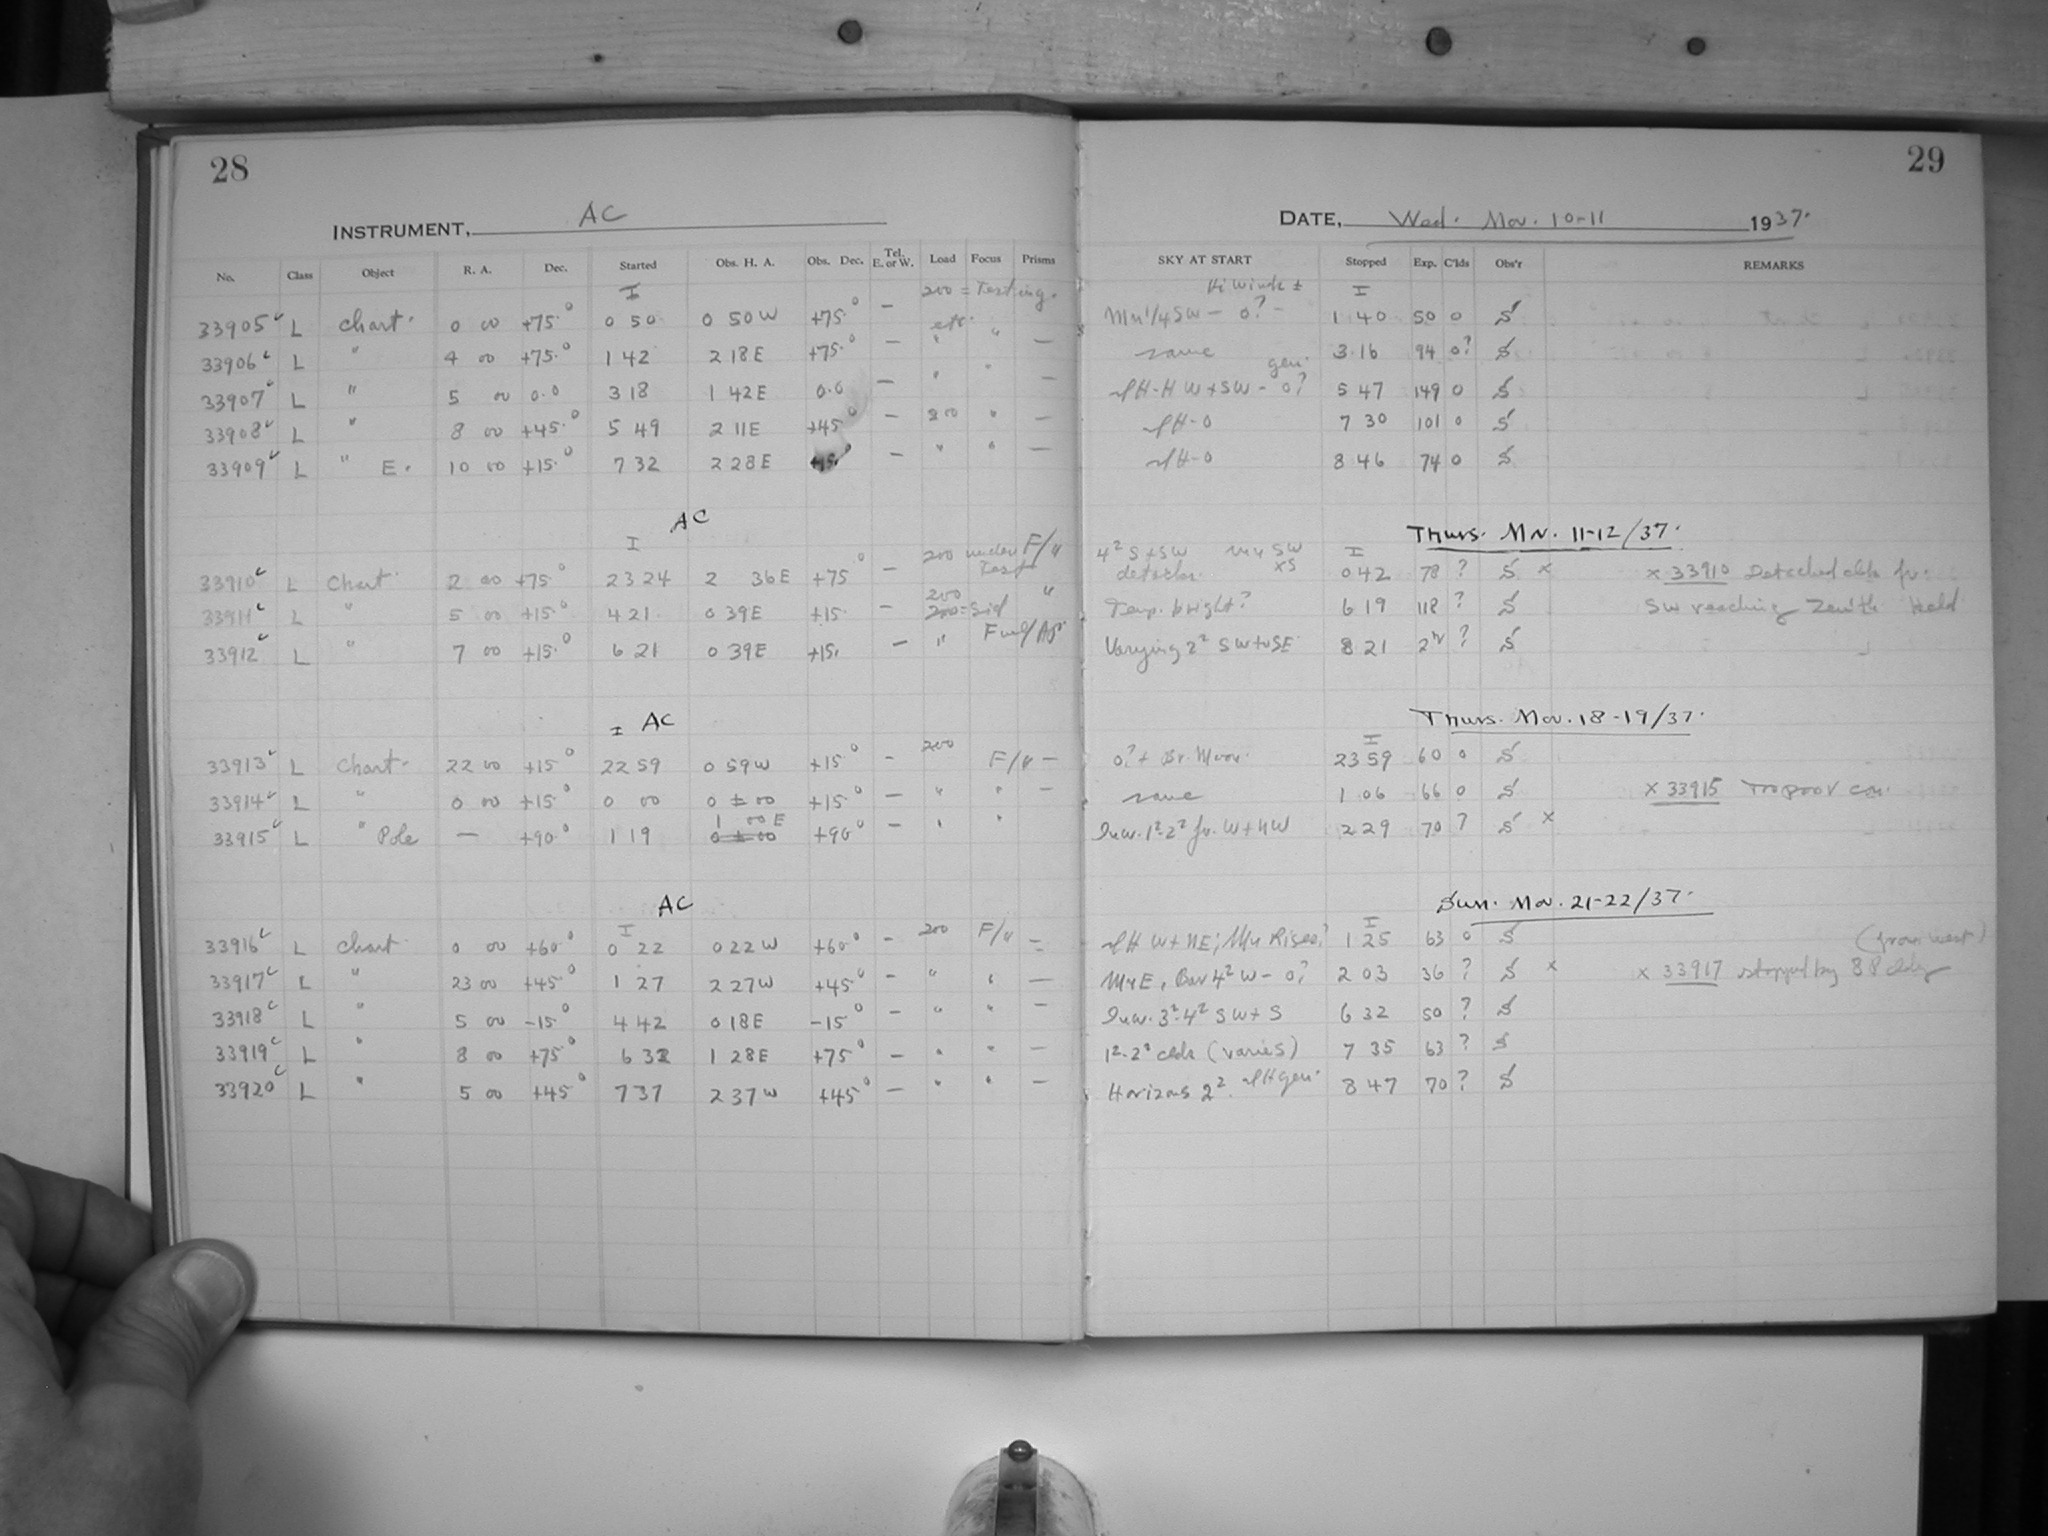 28
INSTRUMENT, AC
No. Class Object R. A. Dec. Started Obs. H. A. Obs. Dec. Tel. E. or W. Load Focus Prisms
I 200 = Testing.
33905 L Chart. 0 00 +75.° 0 50 0 50 W +75.° —
33906 L " 4 00 +75.° 1 42 2 18 E +75.° — " " —
33907 L " 5 00 0.0 3 18 1 42 E 0.0 — " " —
33908 L " 8 00 +45.° 5 49 2 11 E +45° — 200 " —
33909 L " E. 10 00 +15.° 7 32 2 28 E +15.° — " " —
AC
I 200 under Test F/"
33910 L Chart. 2 00 +75° 23 24 2 36 E +75° —
33911 L " 5 00 +15.° 4 21 0 39 E +15. — 200 "
33912 L " 7 00 +15.° 6 21 0 39 E +15. — "
I AC
33913 L Chart. 22 00 +15° 22 59 0 59 W +15° — 200 F/" —
33914 L " 0 00 +15° 0 00 0 ± 00 +15° — " " —
33915 L " Pole — +90.° 1 19 1 00 E +90° — " "
AC
I
33916 L Chart 0 00 +60° 0 22 0 22 W +60° — 200 F/" —
33917 L " 23 00 +45° 1 27 2 27 W +45° — " " —
33918 L " 5 00 -15° 4 42 0 18 E -15° — " " —
33919 L " 8 00 +75° 6 32 1 28 E +75° — " " —
33920 L " 5 00 +45° 7 37 2 37 W +45° — " " —
29
DATE, Wed. Nov. 10-11 1937.
SKY AT START Stopped Exp. C'lds Obs'r REMARKS
I
Mn 1/4 SW — 0? — 1 40 50 0 S
same 3 16 94 0? S
W + SW — 0? gen. 5 47 149 0 S
7 30 101 0 S
8 46 74 0 S
Thurs. Nv. 11-12/37.
4² S + SW I
detached. 0 42 78 ? S x x 33910 Detached clds fr.
Temp. bright? 6 19 118 ? S SW reaching Zenith
Varying 2² SW to SE 8 21 2 ? S
Thurs. Nov. 18-19/37.
I
0? + Br. Moon. 23 59 60 0 S
same 1 06 66 0 S x 33915 Too poor
1²-2² fr. W + NW 2 29 70 ? S x
Sun. Nov. 21-22/37.
I
W + NE; Mn Rises. 1 25 63 0 S (from west)
Mn E, Bar 4² W — 0? 2 03 36 ? S x x 33917 stopped by
3²-4² SW + S 6 32 50 ? S
1²-2² clds (varies) 7 35 63 ? S
Horizons 2² gen. 8 47 70 ? S